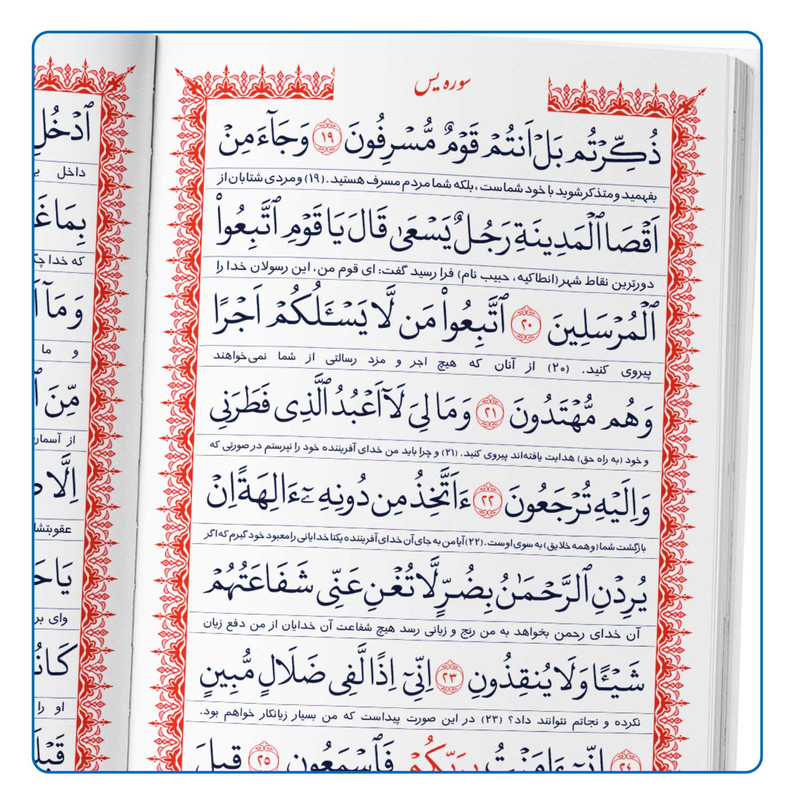 سوره یس
ذُكِّرْتُم بَلْ اَنتُمْ قَوْمٌ مُّسْرِفُونَ ﴿۱۹﴾ وَ جَاۤءَ مِنْ
بفهمید و متذکر شوید با خود شماست، بلکه شما مردم مسرف هستید. (۱۹) و مردی شتابان از
اَقْصَا ٱلْمَدِينَةِ رَجُلٌ يَسْعَىٰ قَالَ يَا قَوْمِ ٱتَّبِعُواْ
دورترین نقاط شهر (انطاکیه، حبیب نام) فرا رسید گفت: ای قوم من، این رسولان خدا را
ٱلْمُرْسَلِينَ ﴿۲۰﴾ ٱتَّبِعُواْ مَن لَّا يَسْـَٔلُكُمْ اَجْرًا
پیروی کنید. (۲۰) از آنان که هیچ اجر و مزد رسالتی از شما نمی‌خواهند
وَ هُم مُّهْتَدُونَ ﴿۲۱﴾ وَ مَا لِىَ لَآ اَعْبُدُ ٱلَّذِى فَطَرَنِى
و خود (به راه حق) هدایت یافته‌اند پیروی کنید. (۲۱) و چرا باید من خدای آفریننده خود را نپرستم در صورتی که
وَ اِلَيْهِ تُرْجَعُونَ ﴿۲۲﴾ ءَاَتَّخِذُ مِن دُونِهِ ىٓ ءَالِهَةً اِنْ
بازگشت شما (و همه خلایق) به سوی اوست. (۲۲) آیا من به جای آن خدای آفریننده یکتا خدایانی را معبود خود گیرم که اگر
يُرِدْنِ ٱلرَّحْمَـٰنُ بِضُرٍّ لَّا تُغْنِ عَنِّى شَفَاعَتُهُمْ
آن خدای رحمن بخواهد به من رنج و زیانی رسد هیچ شفاعت آن خدایان از من دفع زیان
شَيْـًٔا وَ لَا يُنقِذُونِ ﴿۲۳﴾ اِنِّىٓ اِذًا لَّفِى ضَلَالٍ مُّبِينٍ
نکرده و نجاتم نتوانند داد؟ (۲۳) در این صورت پیداست که من بسیار زیانکار خواهم بود.
﴿۲۴﴾ اِنِّىٓ ءَامَنتُ بِرَبِّكُمْ فَٱسْمَعُونِ ﴿۲۵﴾ قِيلَ
ٱدْخُلِ
داخل
كه خدا
وَ مَآ
و ما
مِّنَ
از آسمان
اِلَّا
يَا
وای بر
او را